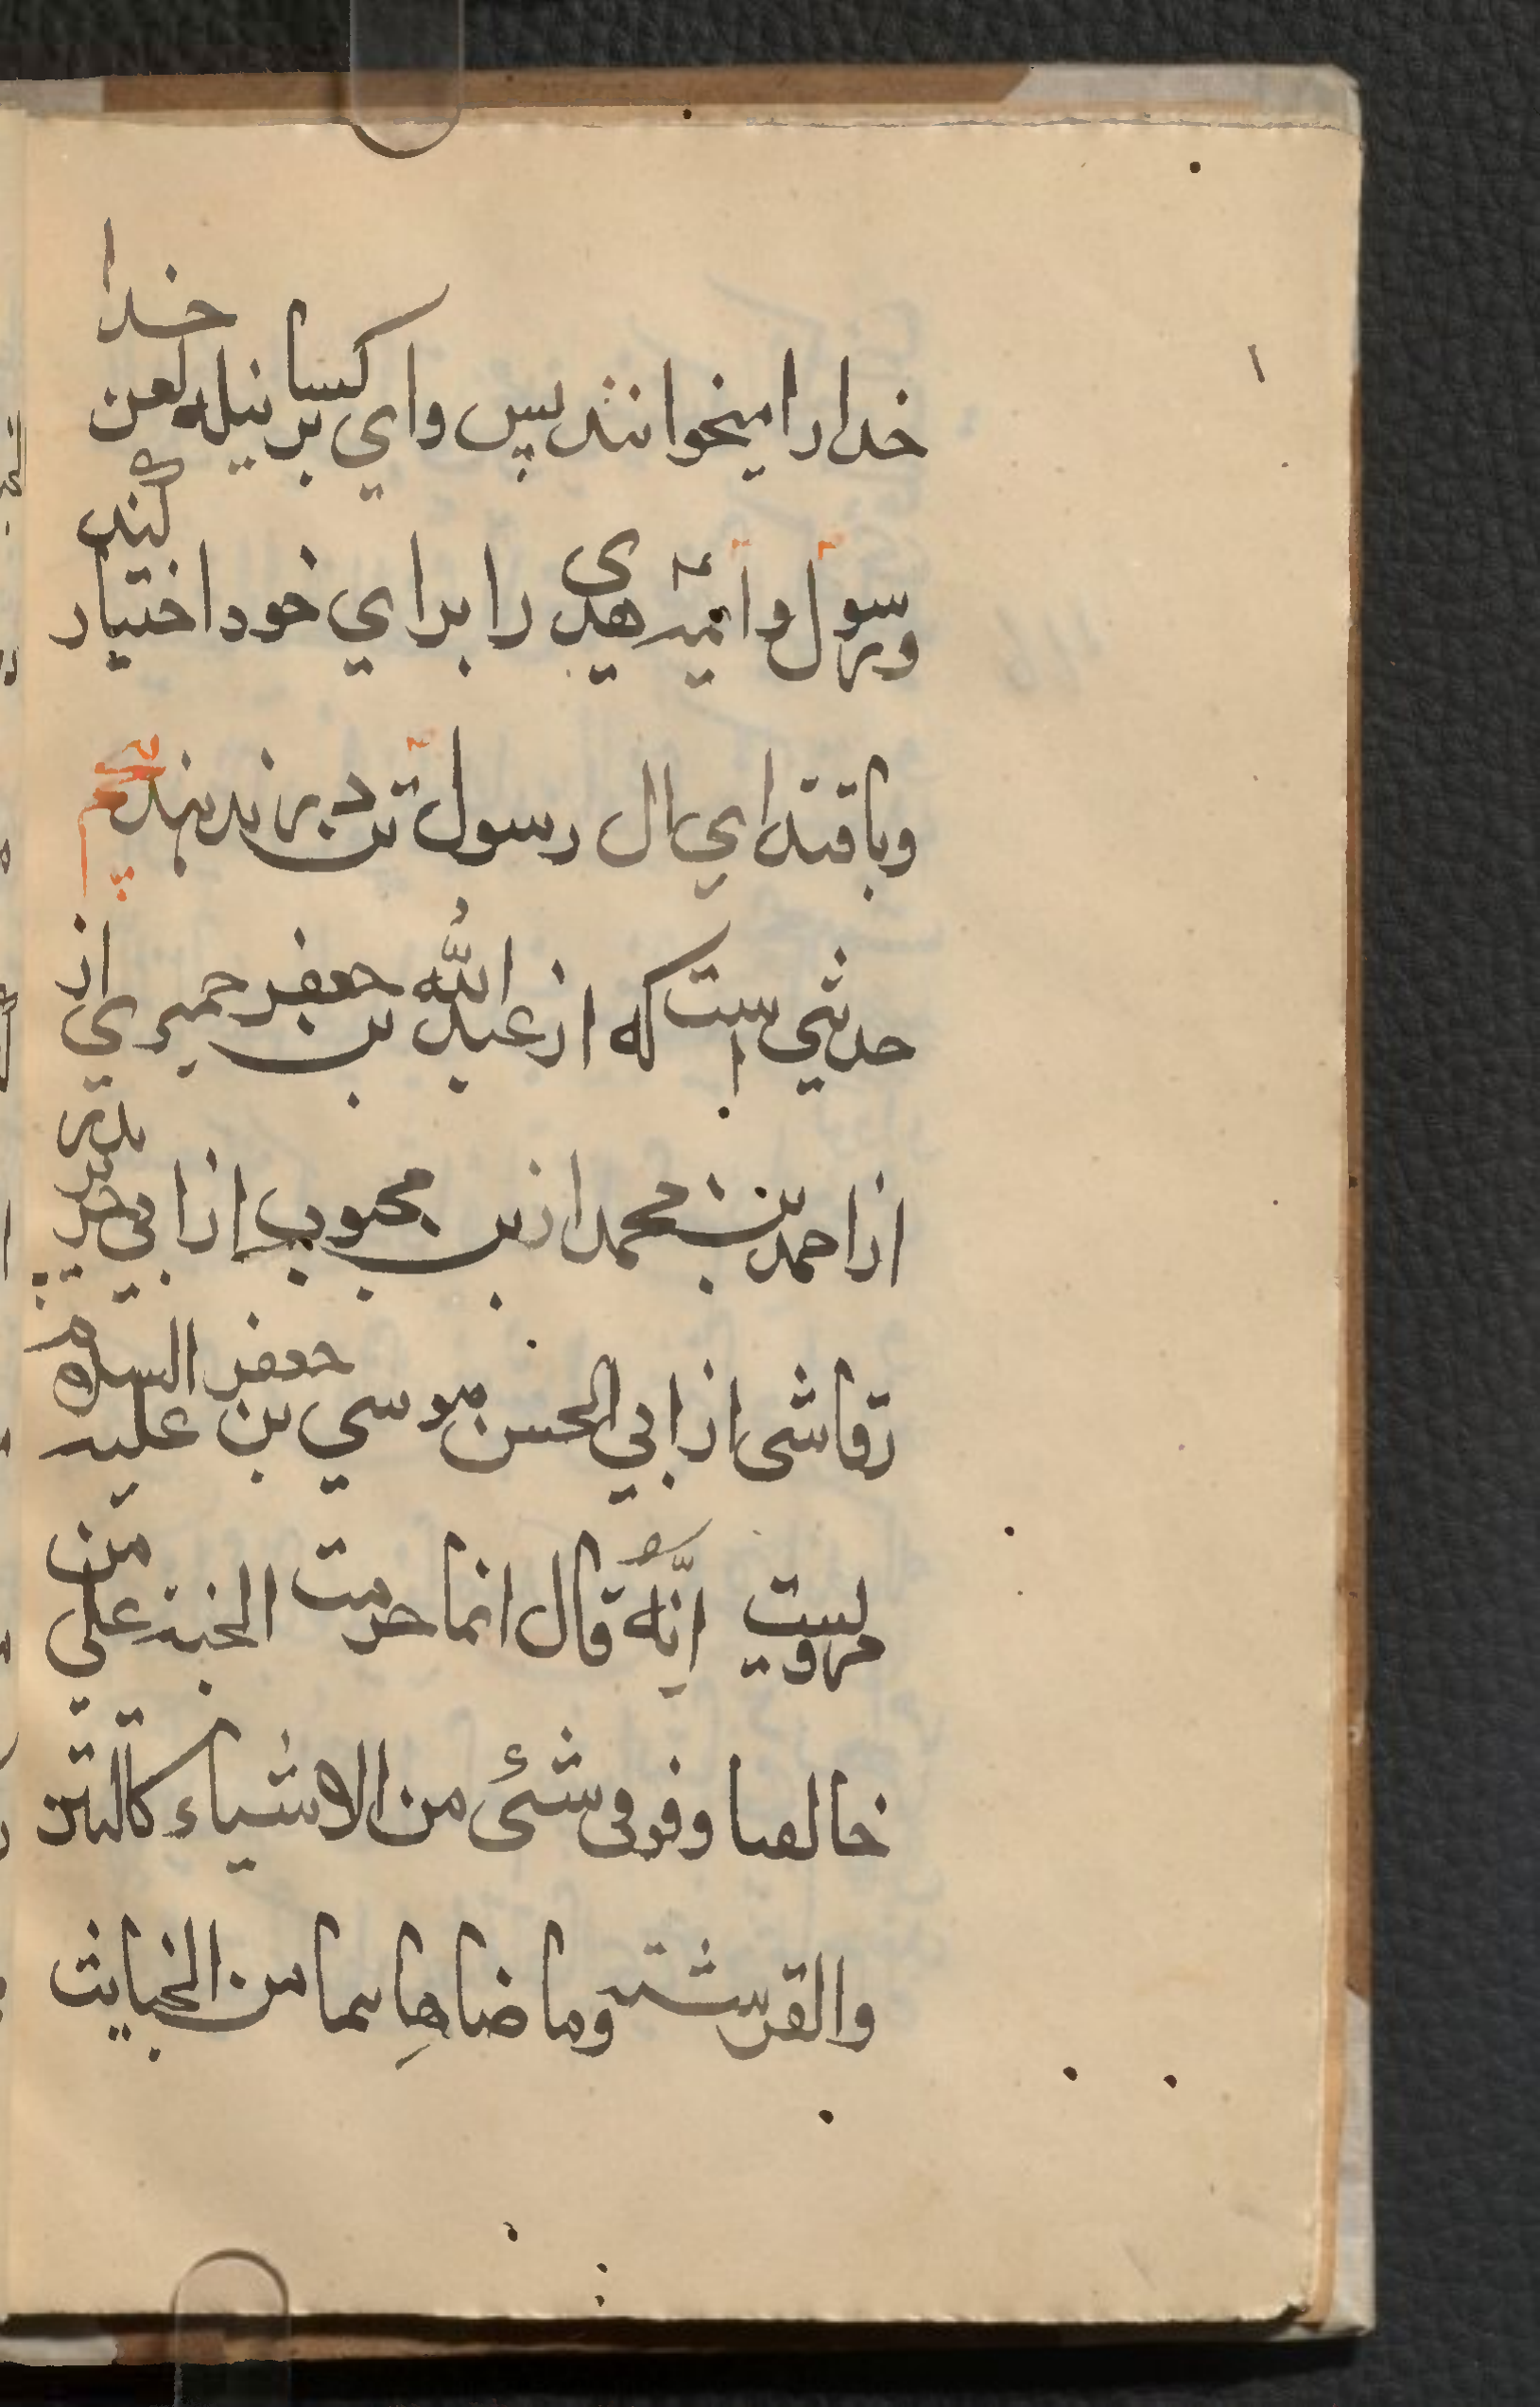 خدا را میخوانند پس وای بر کسانیکه لعن خدا
و رسول و ائمه هدی را برای خود اختیار کنند
و باقتدای ال رسول تن در ندهند
حدیثی است که از عبد الله بن جعفر حمیری از
از احمد بن محمد از بن محبوب از ابی
رقاشی از ابی الحسن موسی بن جعفر علیه السلام
مرویست انّه قال انما حرمت الخبز علی من
خالصا وفرقی شئ من الاشیاء
وما ضاهاهما من الخبایث